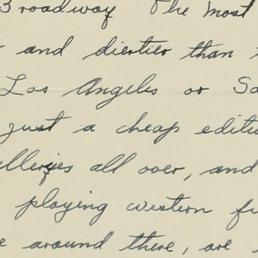 Broadway The most
and diertier than
Los Angeles or Sa
just a cheap editi
alleries all over, and
playing western fi
e around there, are